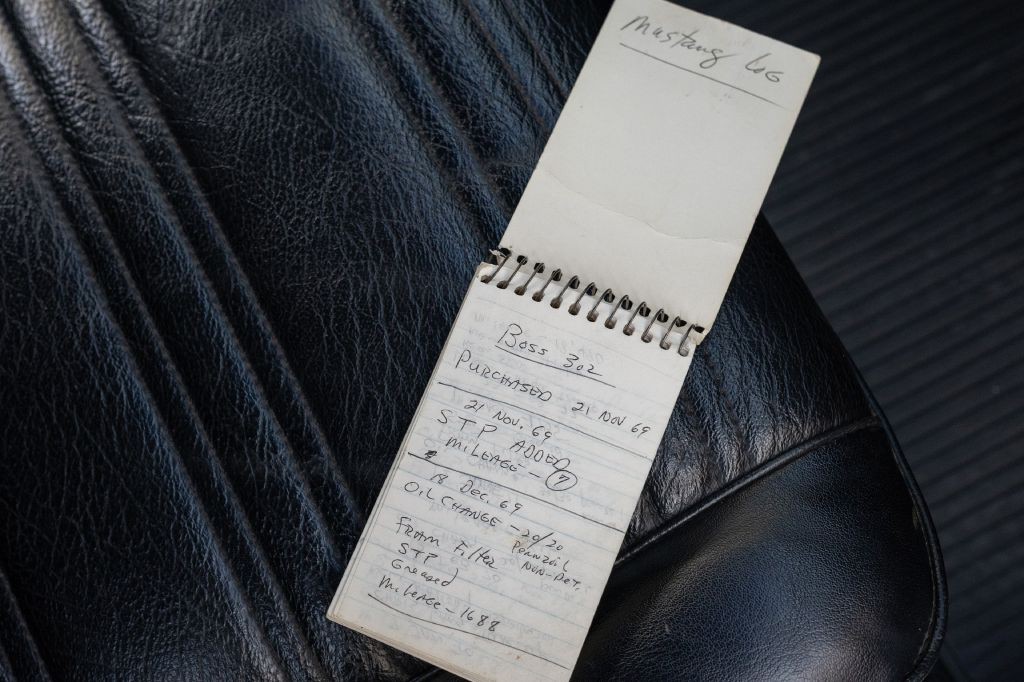 Mustang LOG
Boss 302
PURCHASED 21 NOV 69
21 NOV. 69
STP ADDED
MILEAGE - 7
18 DEC. 69
OIL CHANGE - 20/20
Pennzoil
NON-Det.
FRAM Filter
STP
Greased
MILEAGE - 1688